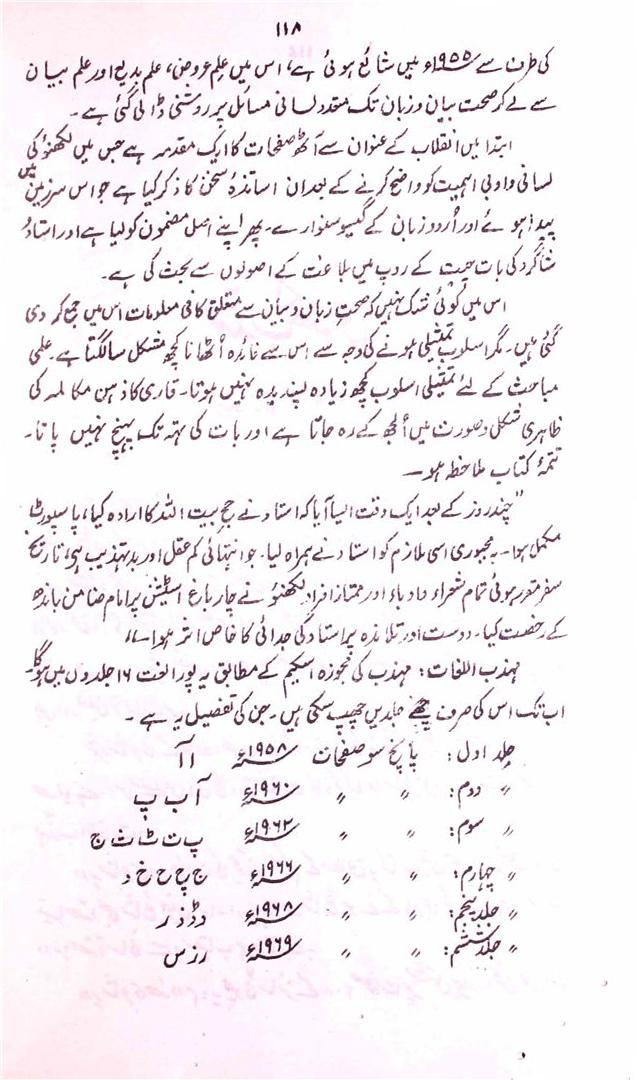 ۱۱۸
کی طرف سے ۱۹۵۵ء میں شائع ہوئی ہے، اس میں علم عروض، علم بدیع اور علم بیان
سے لے کر صحت بیان و زبان تک متعدد لسانی مسائل پر روشنی ڈالی گئی ہے۔
ابتدا میں انقلاب کے عنوان سے آٹھ صفحات کا ایک مقدمہ ہے جس میں لکھنؤ کی
لسانی و ادبی اہمیت کو واضح کرنے کے بعد ان اساتذۂ سخن کا ذکر کیا ہے جو اس سرزمین میں
پیدا ہوئے اور اُردو زبان کے گیسو سنوارے۔ پھر اپنے اصل مضمون کو لیا ہے اور استاد
شاگرد کی بات چیت کے روپ میں بلاغت کے اصولوں سے بحث کی ہے۔
اس میں کوئی شک نہیں کہ صحتِ زبان و بیان سے متعلق کافی معلومات اس میں جمع کر دی
گئی ہیں۔ مگر اسلوب تمثیلی ہونے کی وجہ سے اس سے فائدہ اُٹھانا کچھ مشکل سا لگتا ہے۔ علمی
مباحث کے لئے تمثیلی اسلوب کچھ زیادہ پسندیدہ نہیں ہوتا۔ قاری کا ذہن مکالمہ کی
ظاہری شکل و صورت میں اُلجھ کے رہ جاتا ہے اور بات کی تہہ تک پہنچ نہیں پاتا۔
تتمۂ کتاب ملاحظہ ہو—
"چند روز کے بعد ایک وقت ایسا آیا کہ استاد نے حج بیت اللہ کا ارادہ کیا، پاسپورٹ
مکمل ہوا۔ بہ مجبوری اسی ملازم کو استاد نے ہمراہ لیا۔ جو انتہائی کم عقل اور بدتہذیب ہے، تاریخ
سفر مقرر ہوئی تمام شعراء و ادباء اور ممتاز افراد لکھنؤ نے چار باغ اسٹیشن پر امام ضامن باندھ
کے رخصت کیا۔ دوست اور تلامذہ پر استاد کی جدائی کا خاص اثر ہوا۔"
مہذب اللغات: مہذب کی مجوزہ اسکیم کے مطابق یہ پورا لغت ۱۶ جلدوں میں ہوگا۔
اب تک اس کی صرف چھے جلدیں چھپ سکی ہیں۔ جن کی تفصیل یہ ہے۔
جلد اول: پانچ سو صفحات ۱۹۵۸ء ا آ
〃 دوم: 〃 〃 ۱۹۶۰ء آ ب پ
〃 سوم: 〃 〃 ۱۹۶۲ء پ ت ٹ ث ج
〃 چہارم: 〃 〃 ۱۹۶۶ء ج چ ح خ د
〃 جلد پنجم: 〃 〃 ۱۹۶۸ء د ڈ ذ ر
〃 جلد ششم: 〃 〃 ۱۹۶۹ء ر ز س